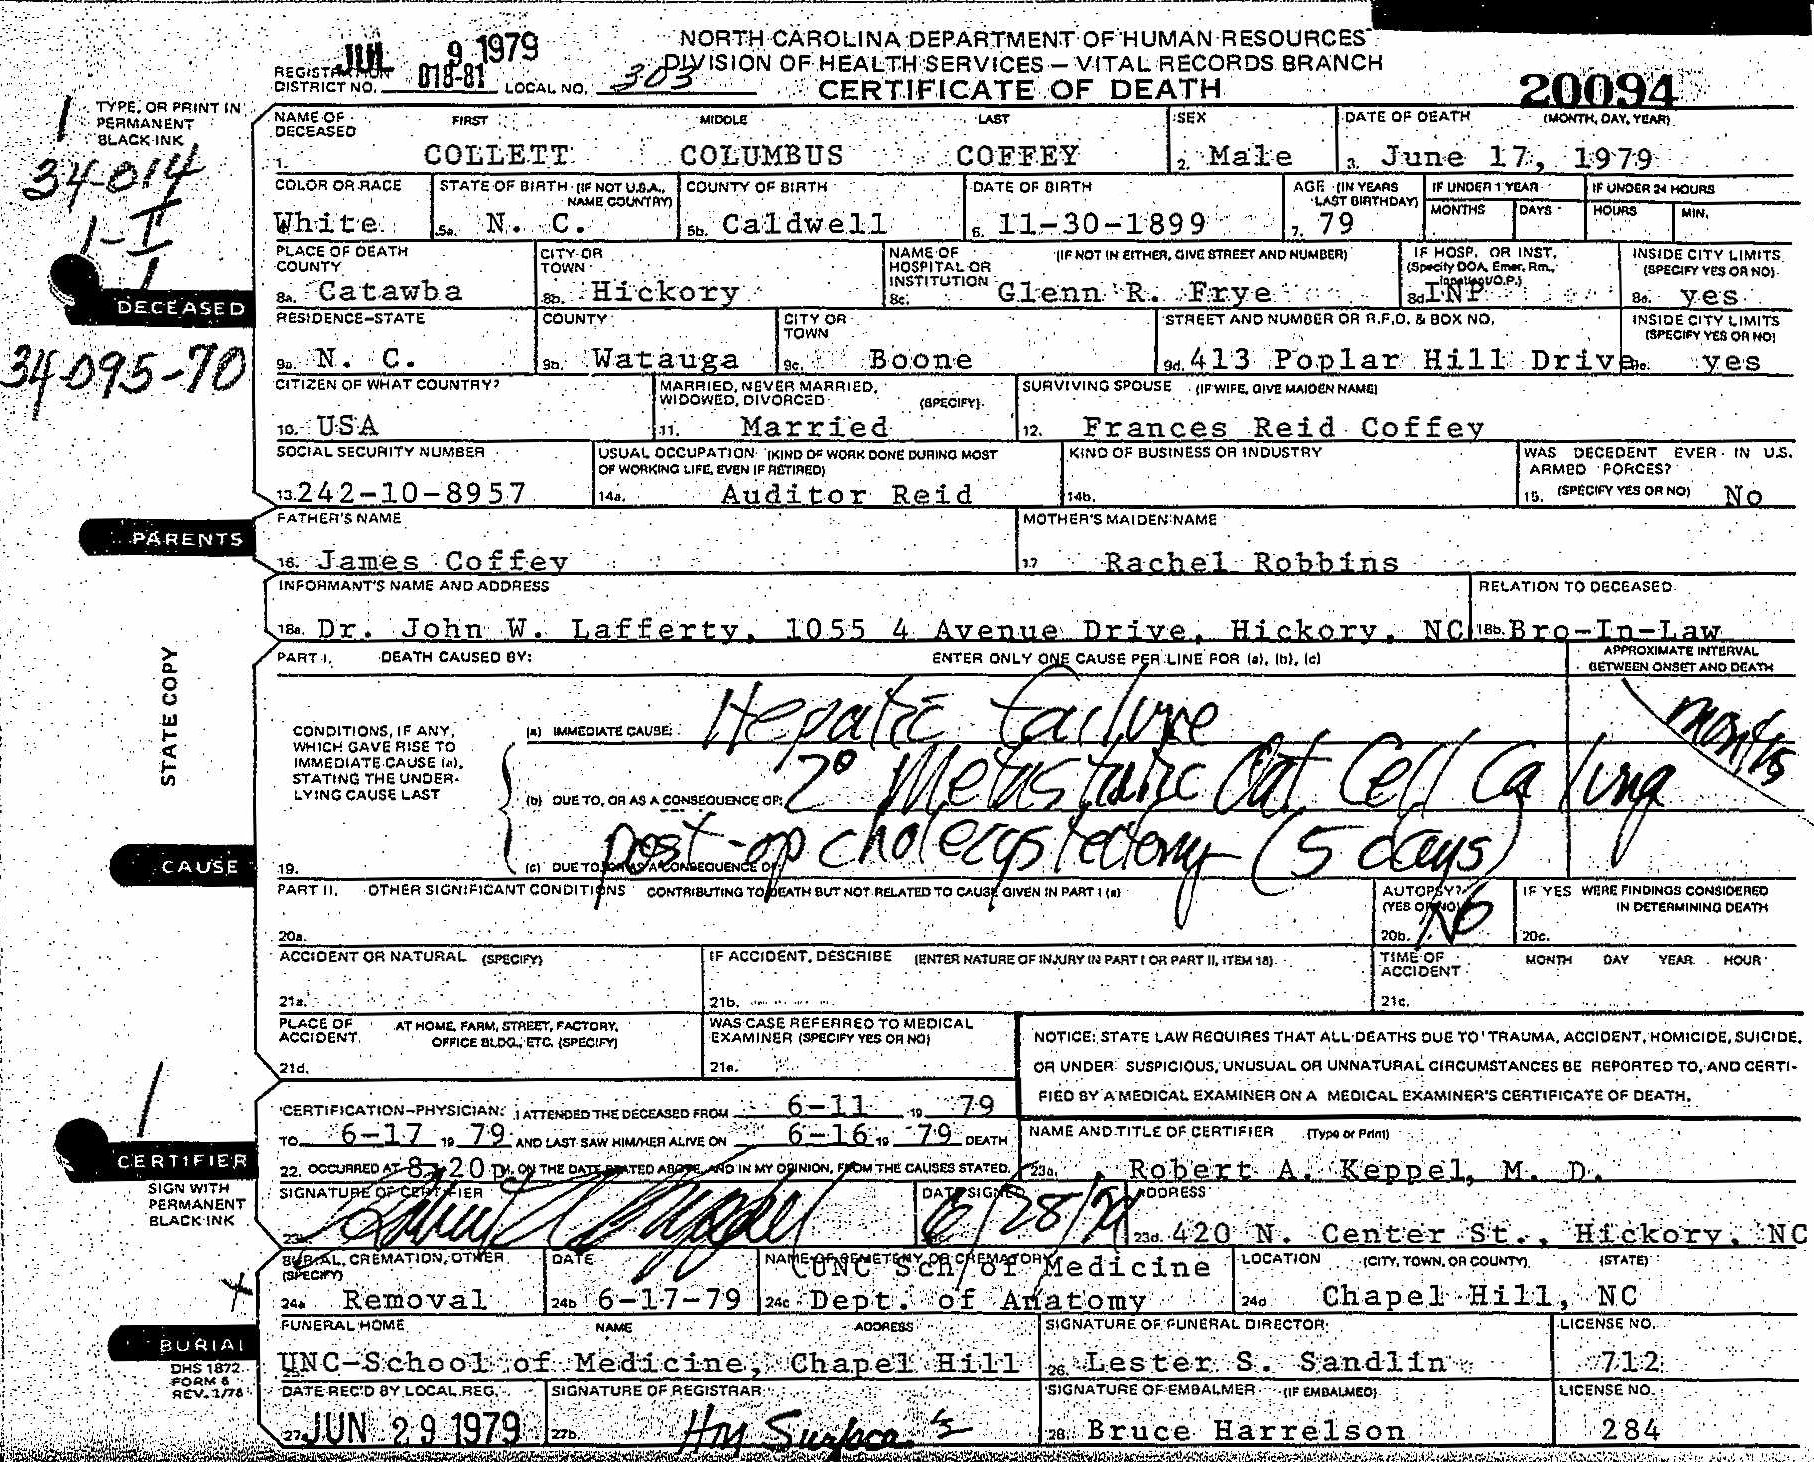 JUL 9 1979
NORTH CAROLINA DEPARTMENT OF HUMAN RESOURCES
DIVISION OF HEALTH SERVICES – VITAL RECORDS BRANCH
REGISTRATION DISTRICT NO. 018-81 LOCAL NO. 303
CERTIFICATE OF DEATH
20094
TYPE, OR PRINT IN PERMANENT BLACK INK
34-014
1-I
1
DECEASED
34-095-70
NAME OF DECEASED FIRST MIDDLE LAST SEX DATE OF DEATH (MONTH, DAY, YEAR)
1. COLLETT COLUMBUS COFFEY 2. Male 3. June 17, 1979
COLOR OR RACE STATE OF BIRTH (IF NOT U.S.A., NAME COUNTRY) COUNTY OF BIRTH DATE OF BIRTH AGE (IN YEARS LAST BIRTHDAY) IF UNDER 1 YEAR IF UNDER 24 HOURS
MONTHS DAYS HOURS MIN.
White 5a. N. C. 5b. Caldwell 6. 11-30-1899 7. 79
PLACE OF DEATH COUNTY CITY OR TOWN NAME OF HOSPITAL OR INSTITUTION (IF NOT IN EITHER, GIVE STREET AND NUMBER) IF HOSP. OR INST. (Specify DOA, Emer. Rm., Inpatient/O.P.) INSIDE CITY LIMITS (SPECIFY YES OR NO)
8a. Catawba 8b. Hickory 8c. Glenn R. Frye 8d INP 8e. yes
RESIDENCE–STATE COUNTY CITY OR TOWN STREET AND NUMBER OR R.F.D. & BOX NO. INSIDE CITY LIMITS (SPECIFY YES OR NO)
9a. N. C. 9b. Watauga 9c. Boone 9d. 413 Poplar Hill Drive 9e. yes
CITIZEN OF WHAT COUNTRY? MARRIED, NEVER MARRIED, WIDOWED, DIVORCED (SPECIFY) SURVIVING SPOUSE (IF WIFE, GIVE MAIDEN NAME)
10. USA 11. Married 12. Frances Reid Coffey
SOCIAL SECURITY NUMBER USUAL OCCUPATION (KIND OF WORK DONE DURING MOST OF WORKING LIFE, EVEN IF RETIRED) KIND OF BUSINESS OR INDUSTRY WAS DECEDENT EVER IN U.S. ARMED FORCES? (SPECIFY YES OR NO)
13. 242-10-8957 14a. Auditor Reid 14b. 15. No
PARENTS
FATHER'S NAME MOTHER'S MAIDEN NAME
16. James Coffey 17 Rachel Robbins
INFORMANT'S NAME AND ADDRESS RELATION TO DECEASED
18a. Dr. John W. Lafferty, 1055 4 Avenue Drive, Hickory, NC 18b. Bro-In-Law
STATE COPY
PART I. DEATH CAUSED BY: ENTER ONLY ONE CAUSE PER LINE FOR (a), (b), (c) APPROXIMATE INTERVAL BETWEEN ONSET AND DEATH
CONDITIONS, IF ANY, WHICH GAVE RISE TO IMMEDIATE CAUSE (a), STATING THE UNDERLYING CAUSE LAST
(a) IMMEDIATE CAUSE: Hepatic failure months
(b) DUE TO, OR AS A CONSEQUENCE OF: 2° Metastatic Oat Cell Ca lung
CAUSE
19. (c) DUE TO, OR AS A CONSEQUENCE OF: post-op cholecystectomy (5 days)
PART II. OTHER SIGNIFICANT CONDITIONS CONTRIBUTING TO DEATH BUT NOT RELATED TO CAUSE GIVEN IN PART I (a) AUTOPSY? (YES OR NO) IF YES WERE FINDINGS CONSIDERED IN DETERMINING DEATH
20a. 20b. No 20c.
ACCIDENT OR NATURAL (SPECIFY) IF ACCIDENT, DESCRIBE (ENTER NATURE OF INJURY IN PART I OR PART II, ITEM 18) TIME OF ACCIDENT MONTH DAY YEAR HOUR
21a. 21b. 21c.
PLACE OF ACCIDENT AT HOME, FARM, STREET, FACTORY, OFFICE BLDG., ETC. (SPECIFY) WAS CASE REFERRED TO MEDICAL EXAMINER (SPECIFY YES OR NO)
21d. 21e.
NOTICE: STATE LAW REQUIRES THAT ALL DEATHS DUE TO TRAUMA, ACCIDENT, HOMICIDE, SUICIDE,
OR UNDER SUSPICIOUS, UNUSUAL OR UNNATURAL CIRCUMSTANCES BE REPORTED TO, AND CERTI-
FIED BY A MEDICAL EXAMINER ON A MEDICAL EXAMINER'S CERTIFICATE OF DEATH.
CERTIFICATION–PHYSICIAN: I ATTENDED THE DECEASED FROM 6-11 19 79
TO 6-17 19 79 AND LAST SAW HIM/HER ALIVE ON 6-16 19 79 DEATH
22. OCCURRED AT 8:20 p M. ON THE DATE STATED ABOVE, AND IN MY OPINION, FROM THE CAUSES STATED.
NAME AND TITLE OF CERTIFIER (Type or Print)
23a. Robert A. Keppel, M. D.
CERTIFIER
SIGN WITH PERMANENT BLACK INK
SIGNATURE OF CERTIFIER DATE SIGNED ADDRESS
6/28/79 23d. 420 N. Center St., Hickory, NC
BURIAL, CREMATION, OTHER (SPECIFY) DATE NAME OF CEMETERY OR CREMATORY LOCATION (CITY, TOWN, OR COUNTY) (STATE)
24a Removal 24b 6-17-79 24c UNC Sch/of Medicine Dept. of Anatomy 24d Chapel Hill, NC
BURIAL
DHS 1872
FORM 6
REV. 1/78
FUNERAL HOME NAME ADDRESS SIGNATURE OF FUNERAL DIRECTOR LICENSE NO.
25. UNC-School of Medicine, Chapel Hill 26. Lester S. Sandlin 712
DATE REC'D BY LOCAL REG. SIGNATURE OF REGISTRAR SIGNATURE OF EMBALMER (IF EMBALMED) LICENSE NO.
27a JUN 29 1979 27b 28. Bruce Harrelson 284